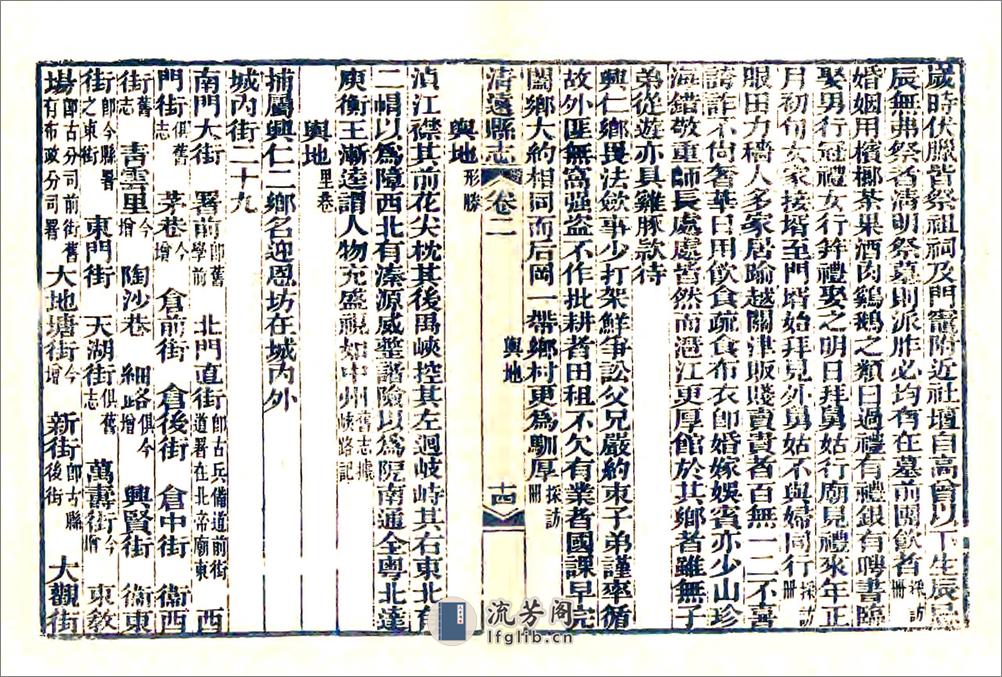 歲時伏臘皆祭祖祠及門竈附近社壇自高曾以下生辰忌
辰無弗祭者清明祭墓則派胙必均有在墓前團飲者採訪冊
婚姻用檳榔茶果酒肉鷄鵝之類曰過禮有禮銀有聘書臨
娶男行冠禮女行笄禮娶之明日拜舅姑行廟見禮來年正
月初旬女家接壻至門壻始拜見外舅姑不與婦同行採訪冊
服田力穡人多家居踰越關津販賤賣貴者百無一二不喜
譸詐不尙奢華日用飲食疏食布衣卽婚嫁娛賓亦少山珍
海錯敬重師長處處皆然而濜江更厚館於其鄉者雖無子
弟從遊亦具雞豚款待
興仁鄉畏法斂事少打架鮮爭訟父兄嚴約束子弟謹率循
故外匪無窩强盜不作批耕者田租不欠有業者國課早完
闔鄉大約相同而后岡一帶鄉村更為馴厚採訪冊
清遠縣志 卷二 輿地 十四
輿地形勝
湞江襟其前花尖枕其後禺峽控其左迥岐峙其右東北有
二帽以為障西北有溱源威整諧險以為阨南通全粵北達
庾衡王漸逵謂人物充盛視如中州舊志據峽路記
輿地里巷
捕屬興仁二鄉名迎恩坊在城內外
城內街二十九
南門大街 署前卽舊學前 北門直街卽古兵備道前街道署在北帝廟東 西
門街俱舊志 茅巷今增 倉前街 倉後街 倉中街 衞西
街舊志 靑雲里今增 陶沙巷 細路俱今增 興賢街 衞東
街卽今縣署之東街 東門街 天湖街俱舊志 萬壽街今增 東敎
場卽古分司前街舊有布政分司署 大地塘街今增 新街卽古縣後街 大觀街
流芳阁
lfglib.cn